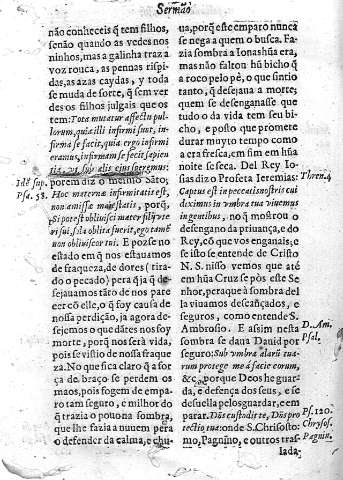 Sermão
não conheceis q̃ tem filhos,
senão quando as vedes nos
ninhos, mas a galinha traz a
voz rouca, as pennas rispi-
das, as azas caydas, y toda
se muda de sorte, q̃ sem ver
des os filhos julgais que os
tem: Tota mutatur affectu pul-
lorum, quia illi infirmi sunt, in-
firma se facit, quia ergo infirmi
eramus, infirmam se fecit sapien
tia, vt sub alis eius speremus:
porem diz o mesmo Sãto;
Hoc maternæ infirmitatis est,
non amissæ maiestatis, porq̃,
Si potest obliuisci mater filij vte
ri sui, si ilia oblita fuerit, ego tamẽ
non obliuiscor tui. E poz se no
estado em q̃ nos estauamos
de fraqueza, de dores (tirã-
do o peccado) pera q̃ ja q̃ de
sejauamos tãto de nos pare
cer cõ elle, o q̃ foy causa de
nossa perdição, ja agora de-
sejemos o que dãtes nos foy
morte, porq̃ nos será vida,
pois se vistio de nossa fraque
za. No que fica claro q̃ a for
ça de braço se perdem os
maos, pois fogem de empa-
ro tam seguro, e milhor do
q̃ trazia o pouo na sombra,
que lhe fazia a nuuem pera
o defender da calma, e chu-
Idẽ sup.
Psa. 58.
ua, porq̃ este emparo nunca
se nega a quem o busca. Fa-
zia sombra a Ionas hũa era,
mas não faltou hũ bicho q̃
a roco pelo pé, o que sintio
tanto, q̃ desejaua a morte;
quem se desenganasse que
tudo o da vida tem seu bi-
cho, e posto que promete
durar muyto tempo como
a era fresca, em fim em hũa
noite se seca. Del Rey Io-
sias dizo Profeta Ieremias:
Captus est in peccatis nostris cui
diximus in vmbra tua viuemus
in gentibus, no q̃ mostrou o
desengano da priuança, e do
Rey, cõ que vos enganais; e
se isto se entende de Cristo
N. S. nisso vemos que até
em hũa Cruz se pòs este Se
nhor, peraque à sombra del
la viuamos descãsados, e
seguros, como entende S.
Ambrosio. E assim nesta
sombra se daua Dauid por
seguro: Sub vmbra alarũ tua-
rum protege me á facie eorum,
&c. porque Deos he guar-
da, e defença dos seus, e se
desuella pelos guardar, e em
parar. Dñs custodit te, Dñs pro
tectio tua: onde S. Chrisosto-
mo, Pagnino, e outros tras-
lada-
Thren. 4
D. Am.
Psal.
Ps. 120.
Chrysos.
Pagnin.